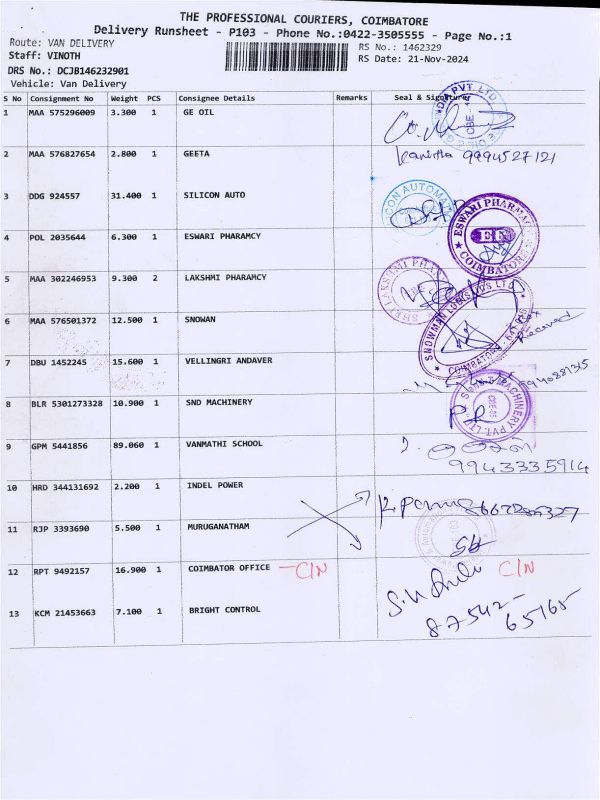 THE PROFESSIONAL COURIERS, COIMBATORE
Delivery Runsheet - P103 - Phone No.:0422-3505555 - Page No.:1
Route: VAN DELIVERY
RS No.: 1462329
Staff: VINOTH
RS Date: 21-Nov-2024
DRS No.: DCJB146232901
Vehicle: Van Delivery
S No Consignment No Weight PCS Consignee Details Remarks Seal & Signature
1 MAA 575296009 3.300 1 GE OIL
2 MAA 576827654 2.800 1 GEETA 9994527121
3 DDG 924557 31.400 1 SILICON AUTO
4 POL 2035644 6.300 1 ESWARI PHARAMCY
ESWARI PHARMA
COIMBATORE
5 MAA 302246953 9.300 2 LAKSHMI PHARAMCY
6 MAA 576501372 12.500 1 SNOWAN
Received
7 DBU 1452245 15.600 1 VELLINGRI ANDAVER
8 BLR 5301273328 10.900 1 SND MACHINERY
9 GPM 5441856 89.060 1 VANMATHI SCHOOL
9943335914
10 HRD 344131692 2.200 1 INDEL POWER
11 RJP 3393690 5.500 1 MURUGANATHAM
12 RPT 9492157 16.900 1 COIMBATOR OFFICE - C/N C/N
13 KCM 21453663 7.100 1 BRIGHT CONTROL
87542-
65165